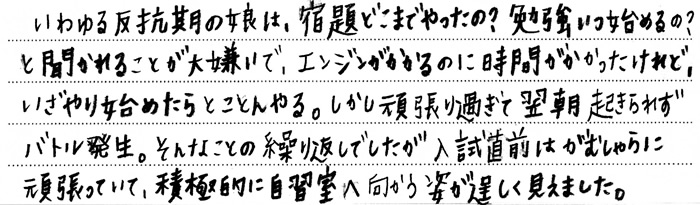 いわゆる反抗期の娘は、宿題どこまでやったの？勉強いつ始めるの？
と聞かれることが大嫌いで、エンジンがかかるのに時間がかかったけれど、
いざやり始めたらとことんやる。しかし頑張り過ぎて翌朝起きられず
バトル発生。そんなことの繰り返しでしたが入試直前はがむしゃらに
頑張っていて、積極的に自習室へ向かう姿が逞しく見えました。